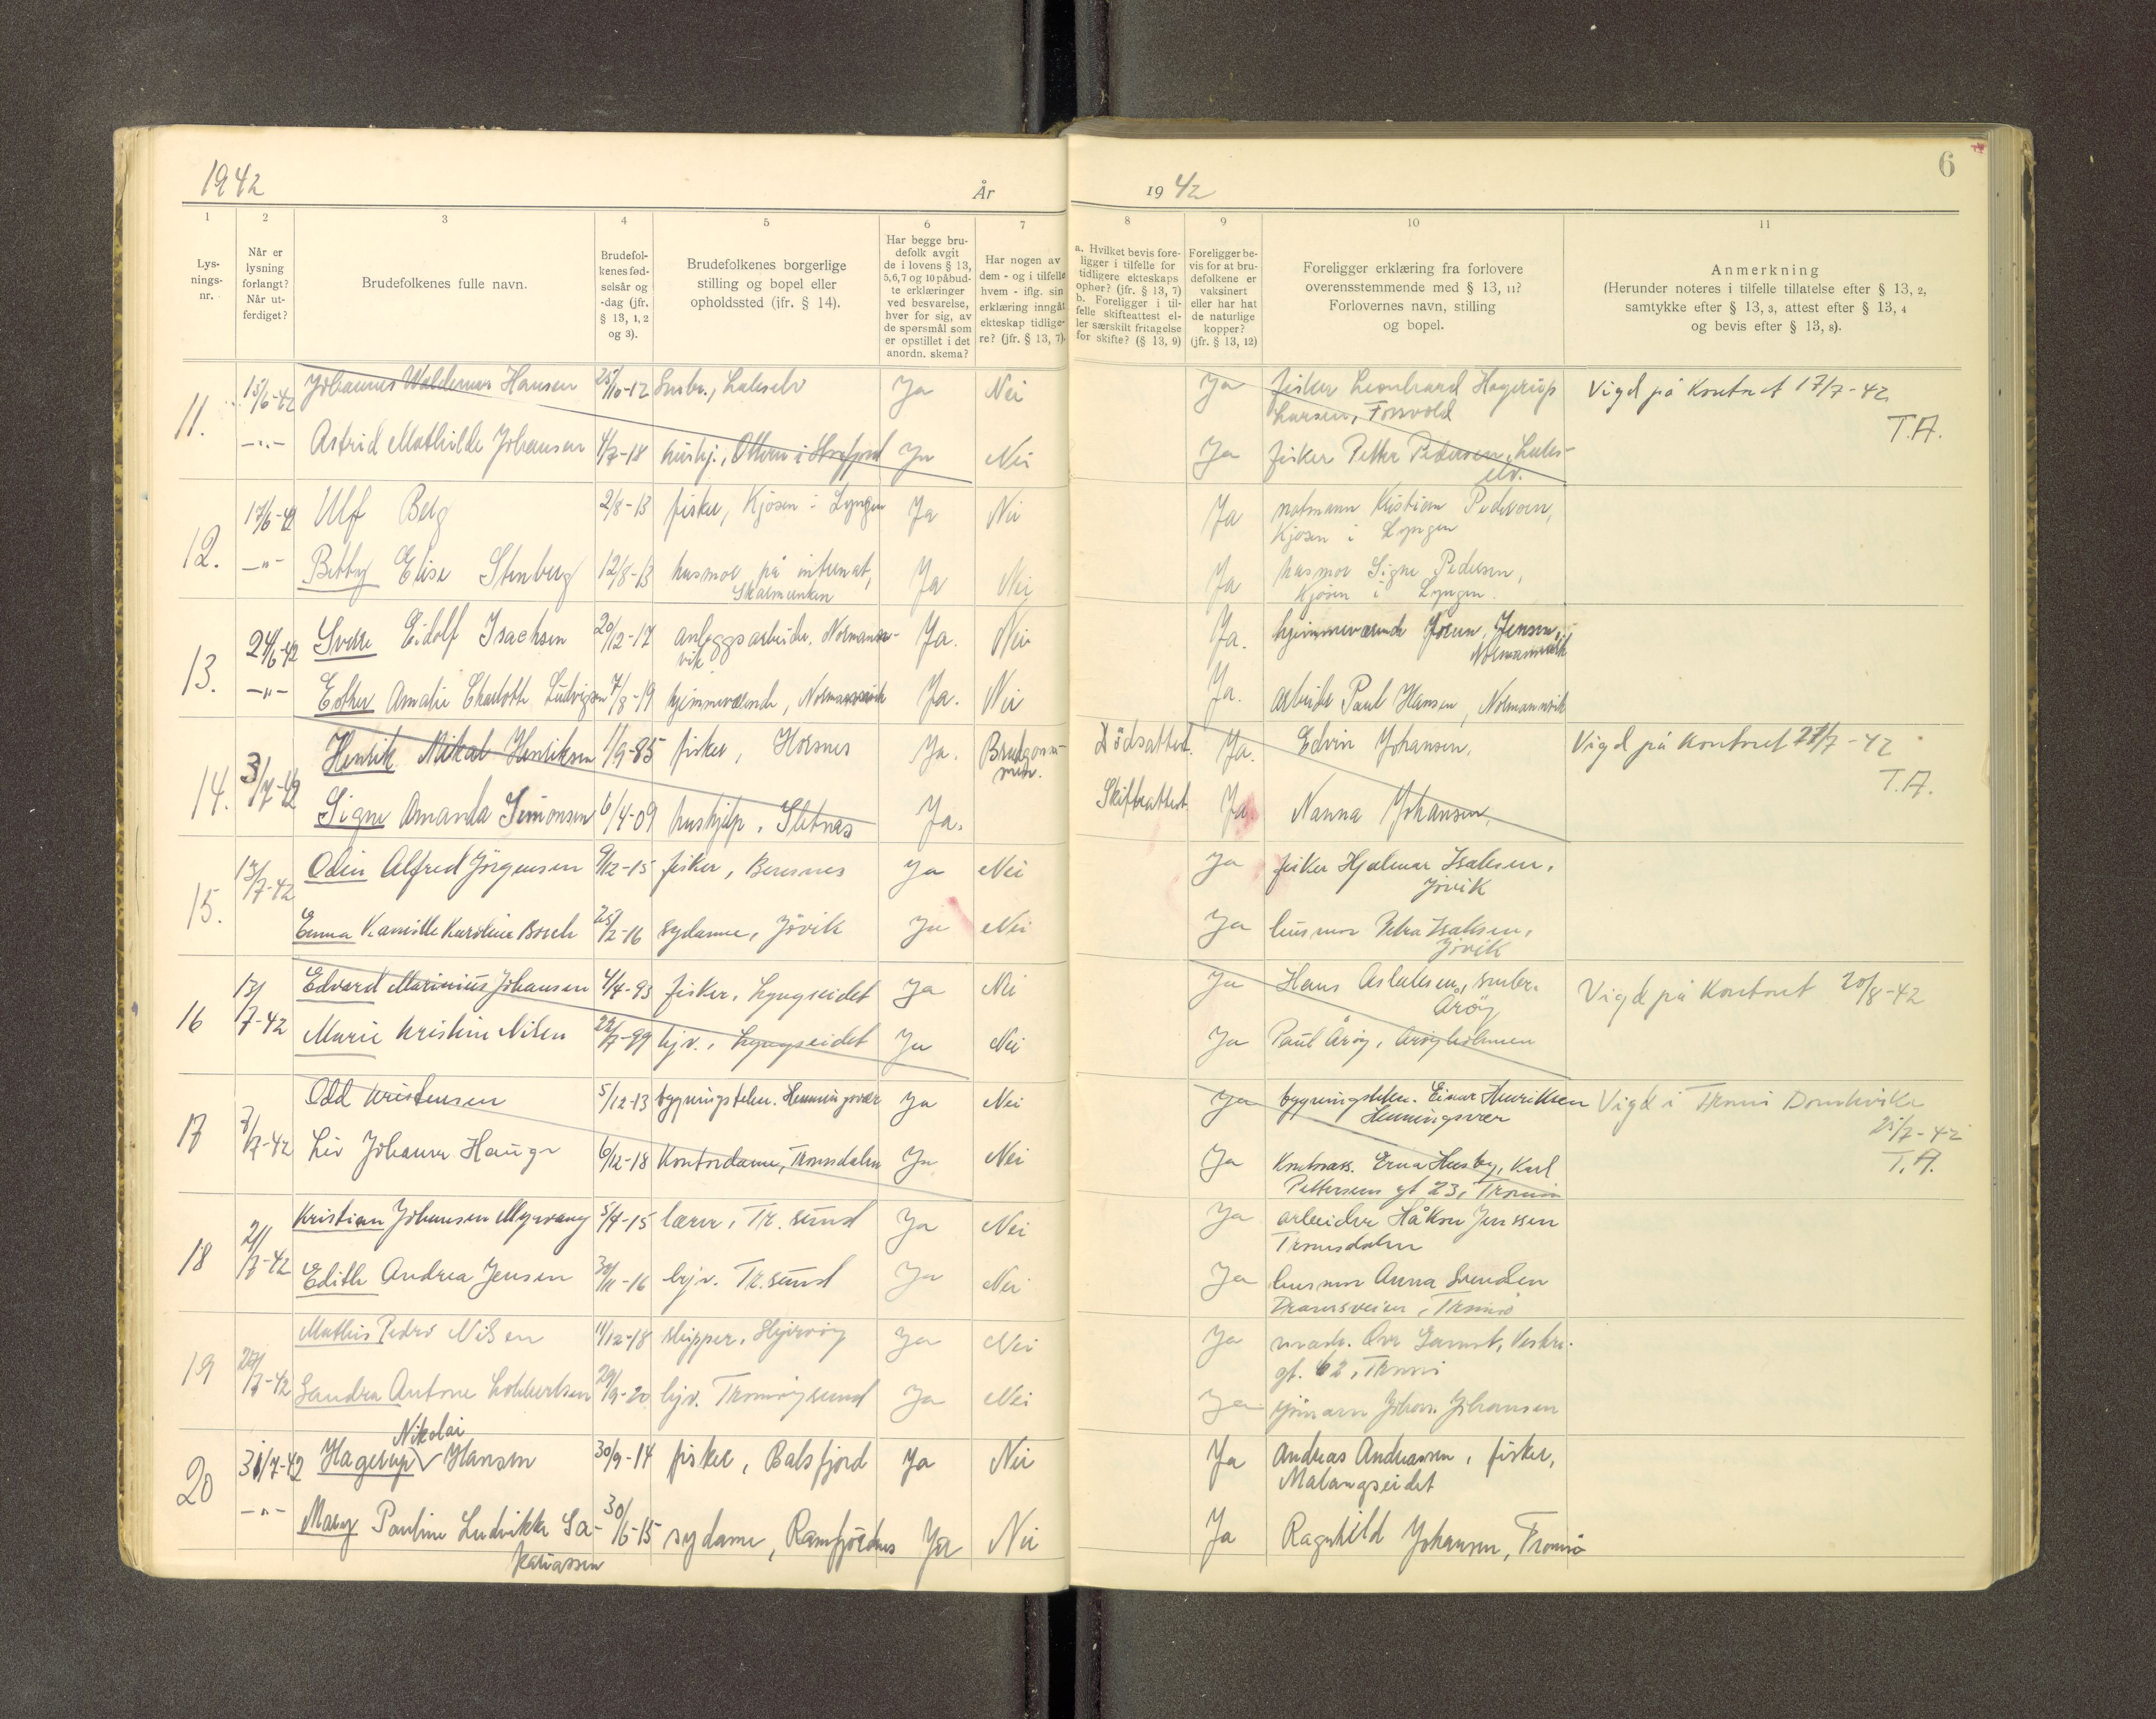 1942
År
1942
6
1 2 3 4 5 6 7 8 9 10 11
Lys-
nings-
nr.
Når er
lysning
forlangt?
Når ut-
ferdiget?
Brudefolkenes fulle navn.
Brudefol-
kenes fød-
selsår og
-dag (jfr.
§ 13, 1, 2
og 3).
Brudefolkenes borgerlige
stilling og bopel eller
opholdssted (jfr. § 14).
Har begge bru-
defolk avgit
de i lovens § 13,
5,6,7 og 10 påbud-
te erklæringer
ved besvarelse,
hver for sig, av
de spørsmål som
er opstillet i det
anordn. skema?
Har nogen av
dem - og i tilfelle
hvem - iflg. sin
erklæring inngåt
ekteskap tidlige-
re? (jfr. § 13, 7).
a. Hvilket bevis fore-
ligger i tilfelle for
tidligere ekteskaps
ophør? (jfr. § 13, 7)
b. Foreligger i til-
felle skifteattest el-
ler særskilt fritagelse
for skifte? (§ 13, 9)
Foreligger be-
vis for at bru-
defolkene er
vaksinert
eller har hat
de naturlige
kopper?
(jfr. § 13, 12)
Foreligger erklæring fra forlovere
overensstemmende med § 13, 11?
Forlovernes navn, stilling
og bopel.
Anmerkning
(Herunder noteres i tilfelle tillatelse efter § 13, 2,
samtykke efter § 13, 3, attest efter § 13, 4
og bevis efter § 13, 8).
11. 15/6-42 Johannes Waldemar Hansen 25/10-12 Småbr., Lakselv Ja Nei Ja fisker Leonhard Hagerup
Larsen, Forsvold Vigd på kontoret 17/7-42
T.A.
-"- Astrid Mathilde Johansen 4/7-18 hushj., Ja Nei Ja fisker Petter Pedersen, Laks-
elv.
12. 17/6-42 Ulf Berg 2/8-13 fisker, Kjosen i Lyngen Ja Nei Ja notmann Kristian Pedersen,
Kjosen i Lyngen
-"- Betty Elise Stenberg 12/8-13 husmor på internat,
Skalmunken Ja Nei Ja husmor Signe Pedersen,
Kjosen i Lyngen.
13. 24/6-42 Sverre Eidolf Isachsen 20/12-17 anleggsarbeider, Normann-
vik Ja. Nei Ja. hjemmeværende Jorun Jensen,
Normannvik
-"- Esther Amalie Charlotte Ludvigsen 7/8-19 hjemmeværende, Normannvik Ja. Nei Ja. arbeider Paul Hansen, Normannvik
14. 3/7-42 Henrik Mikal Henriksen 1/9-85 fisker, Horsnes Ja. Brudgom-
men. Dødsattest. Ja. Edvin Johansen, Vigd på kontoret 27/7-42
T.A.
Signe Amanda Simonsen 6/4-09 hushjelp, Sletnes Ja. Skifteattest. Ja. Nanna Johansen,
15. 13/7-42 Odin Alfred Jørgensen 9/12-15 fisker, Beresnes Ja Nei Ja fisker Hjalmar Isaksen,
Jøvik
Emma Kamille Karoline Borch 25/2-16 sydame, Jøvik Ja Nei Ja husmor Petra Isaksen,
Jøvik
16 13/7-42 Edvard Marinius Johansen 4/4-93 fisker, Lyngseidet Ja Nei Ja Hans Aslaksen, småbr.
Årøy Vigd på kontoret 20/8-42
Marie Kristine Nilsen 22/7-99 hjv., Lyngseidet Ja Nei Ja Paul Årøy, Årøyholmen
17 7/7-42 Odd Kristensen 5/12-13 bygningstekn. Henningsvær Ja Nei Ja bygningstekn. Einar Henriksen
Henningsvær Vigd i Tromsø Domkirke
25/7-42
T.A.
Liv Johanne Hauge 6/12-18 Kontordame, Tromsdalen Ja Nei Ja Kontorass. Erna Husby, Karl
Pettersens gt 23, Tromsø
18 21/7-42 Kristian Johansen Myrvang 5/4-15 lærer, Tr.sund Ja Nei Ja arbeider Håkon Jenssen
Tromsdalen
Edith Andrea Jensen 30/11-16 hjv. Tr.sund Ja Nei Ja husmor Anna Svendsen
Dramsveien, Tromsø
19 27/7-42 Mathis Pedro Nilsen 11/12-18 skipper, Skjervøy Ja Nei Ja
gt. 62, Tromsø
Sandra Antone Lockertsen 29/9-20 hjv. Tromsøysund Ja Nei Ja sjømann Johan Johansen
20 31/7-42 Hagerup Nikolai Hansen 30/9-14 fisker, Balsfjord Ja Nei Ja Andreas Andreassen, fisker,
Malangseidet
-"- Mary Pauline Ludvikke Sa-
kariassen 30/6-15 sydame, Ramfjordnes Ja Nei Ja Ragnhild Johansen, Tromsø